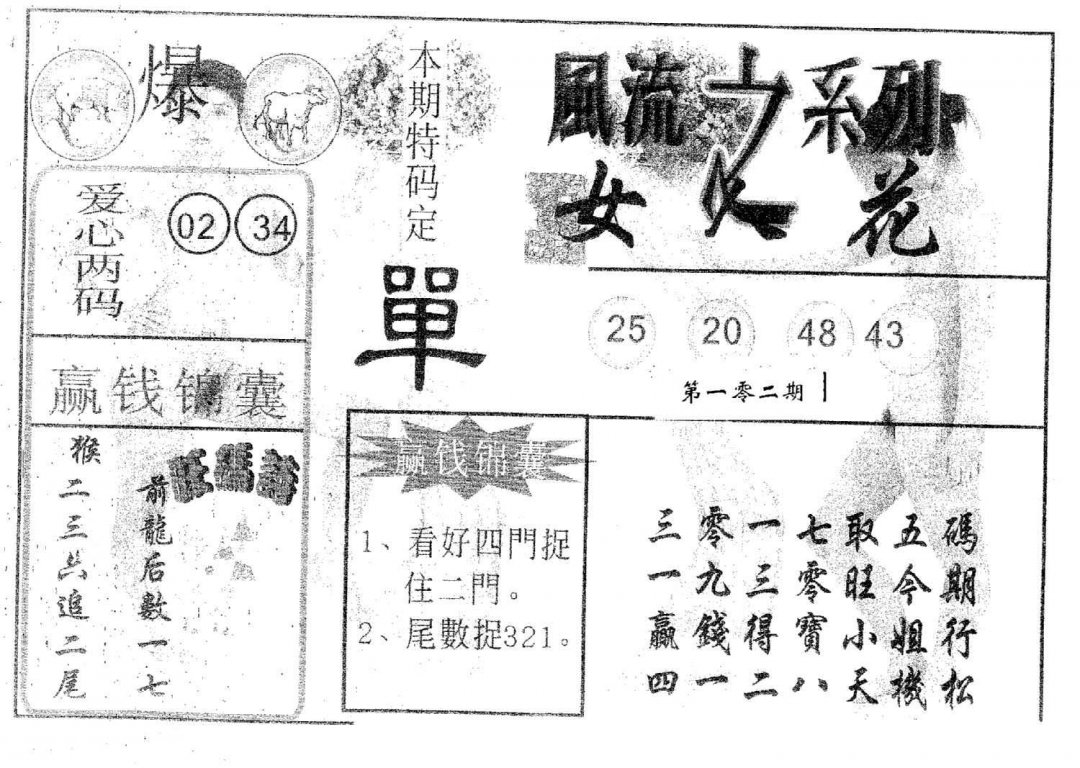 爆
本期特码定
單
風流之系列
女人花
爱心两码
02 34
25 20 48 43
第一零二期
赢钱锦囊
旺碼诗
前龍后數一七
猴二三六追二尾
赢钱锦囊
1、看好四門捉
住二門。
2、尾數捉321。
碼期行松
五今姐機
取旺小天
七零寶八
一三得二
零九錢一
三一贏四